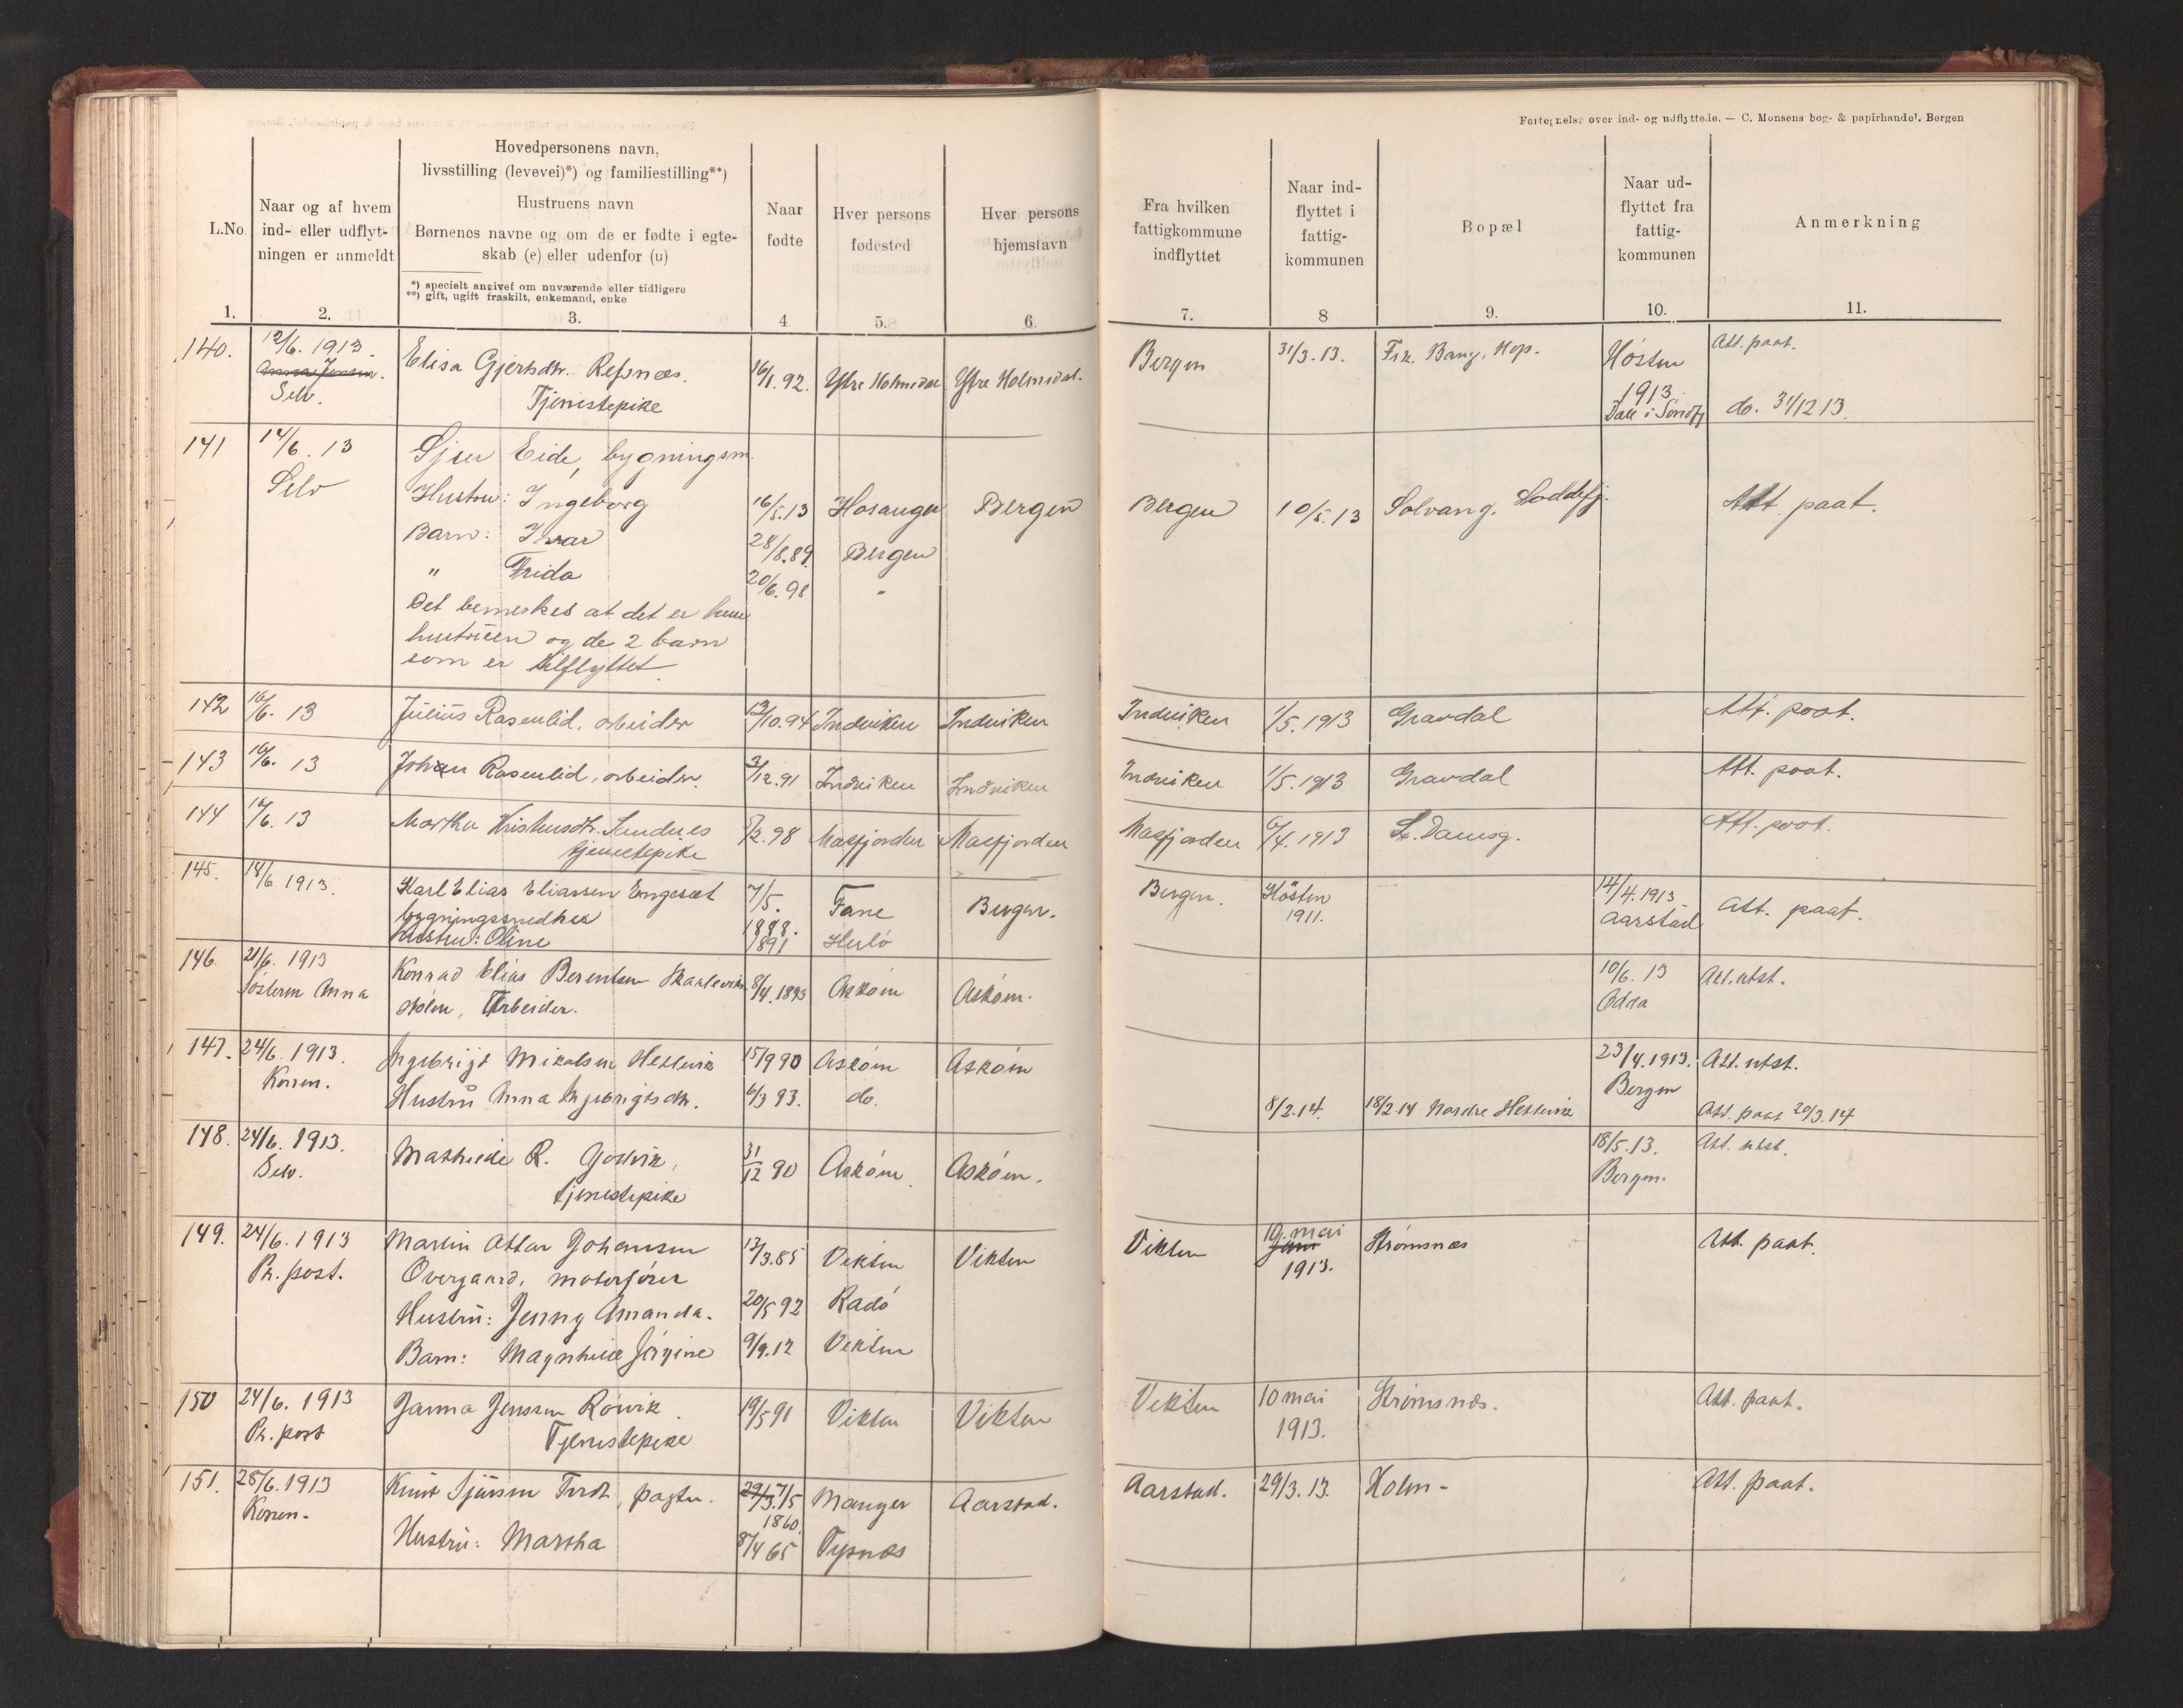 Fortegnelse over ind- og udflyttede. — C. Monsens bog- & papirhandel. Bergen
L.No.
1.
Naar og af hvem
ind- eller udflyt-
ningen er anmeldt
2.
Hovedpersonens navn,
livsstilling (levevei)*) og familiestilling**)
Hustruens navn
Børnenes navne og om de er fødte i egte-
skab (e) eller udenfor (u)
*) specielt angivet om nuværende eller tidligere
**) gift, ugift fraskilt, enkemand, enke
3.
Naar
fødte
4
Hver persons
fødested
5.
Hver persons
hjemstavn
6.
Fra hvilken
fattigkommune
indflyttet
7.
Naar ind-
flyttet i
fattig-
kommunen
8
Bopæl
9.
Naar ud-
flyttet fra
fattig-
kommunen
10.
Anmerkning
11.
140. 12/6. 1913. Elisa Gjertsdtr. Refsnæs. 16/1. 92. Ytre Holmedal Ytre Holmedal. Bergen 31/3. 13. Frk. Bang, Hop. Høsten Att. paat.
Anna Jensen.
Selv. Tjenestepike 1913
Dale i Søndfj do. 31/12 13.
141 14/6. 13 Sjur Eide, bygningsm.
Selv Hustru: Ingeborg 16/5.13 Hosanger Bergen Bergen 10/5. 13 Solvang. Att. paat.
Barn: Ivar 28/8.89. Bergen
" Frida 20/6. 98 "
Det bemerkes at det er kun
hustruen og de 2 barn
som er tilflyttet.
142 16/6. 13 Julius Rasenlid, arbeider 13/10.94 Indviken Indviken Indviken 1/5. 1913 Gravdal Att. paat.
143 16/6. 13 Johan Rasenlid, arbeider. 3/12. 91 Indviken Indviken Indviken 1/5. 1913 Gravdal Att. paat.
144 16/6. 13 Martha Sandnes /2. 98 Masfjorden Masfjorden Masfjorden 6/4. 1913 Damsg. Att. paat.
tjenestepike
145. 18/6 1913. Karl Elias Eliassen Engesæt 7/5. Fane Bergen. Bergen. Høsten 14/4. 1913 Att. paat.
bygningssnedker 1888. 1911. Aarstad
Hustru: Oline 1891 Herlö
146. 21/6. 1913 Konrad Elias Berentsen 8/4. 1893 Asköin Asköin. 10/6. 13 Att. utst.
Søsteren Anna Arbeider. Odda
147. 24/6. 1913. Ingebrigt Mikalsen Hetlevik 15/9 90 Asköin Asköin 23/4. 1913. Att. utst.
Konen. Bergen
Hustru Anna Ingebrigtsdtr. 6/3 93. do. 8/2. 14. 18/2. 14 Nordre Hetlevik Att. paat 20/3. 14
148. 24/6. 1913. Mathilde R. Godvik, 31/12 90 Asköin Asköin. 18/5. 13. Att. utst.
Selv. tjenestepike Bergen.
149. 24/6. 1913 Martin Johansen 13/3. 85 Vikten Vikten Vikten 10. mai Strømsnæs Att. paat.
Pr. post. Overgaard, motorfører juni
1913.
Hustru: Jenny Amanda. 20/5 92 Radö
Barn: Magnhild Jørgine 9/9. 12 Vikten
150 24/6. 1913 Janna Jenssen Rörvik 19/5 91 Vikten Vikten Vikten 10 mai Strømsnæs. Att. paat.
Pr. post Tjenestepike 1913.
151. 28/6. 1913 Knut Sjursen pagter. 29/3. 7/5 Manger Aarstad. Aarstad. 29/3. 13. Holm- Att. paat.
Konen. 1860.
Hustru: Martha 8/4 65 Tysnæs